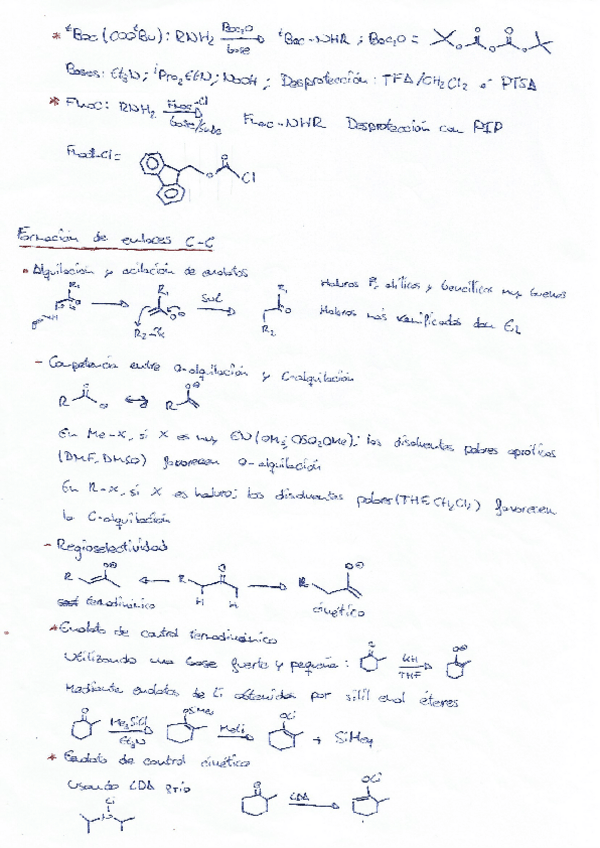 * ᵗBoc (COOᵗBu): RNH₂ Boc₂O base ᵗBoc-NHR ; Boc₂O =
Bases: Et₃N; ⁱPr₂EtN; NaOH ; Desprotección: TFA/CH₂Cl₂ ó PTSA
* Fmoc: RNH₂ Fmoc-Cl base Fmoc-NHR Desprotección con PIP
Fmoc-Cl = O Cl
Formación de enlaces C-C
• Alquilación y acilación de enolatos
R₁ R₁ SN2 R₁ Haluros 1º, alílicos y bencílicos muy buenos
R₂-X R₂ Haluros más ramificados dan E₂
- Competencia entre O-alquilación y C-alquilación
R O R
En Me-X, si X es muy EN (OMs, OSO₂OMe); los disolventes polares apróticos
(DMF, DMSO) favorecen O-alquilación
En R-X, si X es haluro; los disolventes polares (THF, CH₂Cl₂) favorecen
la C-alquilación
- Regioselectividad
R R H H R
termodinámico cinético
* Enolato de control termodinámico
Utilizando una base fuerte y pequeña: KH THF
Mediante enolatos de Li obtenidos por silil enol éteres
O Me₃SiCl Et₃N OSiMe₃ MeLi OLi + SiMe₄
* Enolato de control cinético
Usando LDA frío O LDA OLi
Li
N